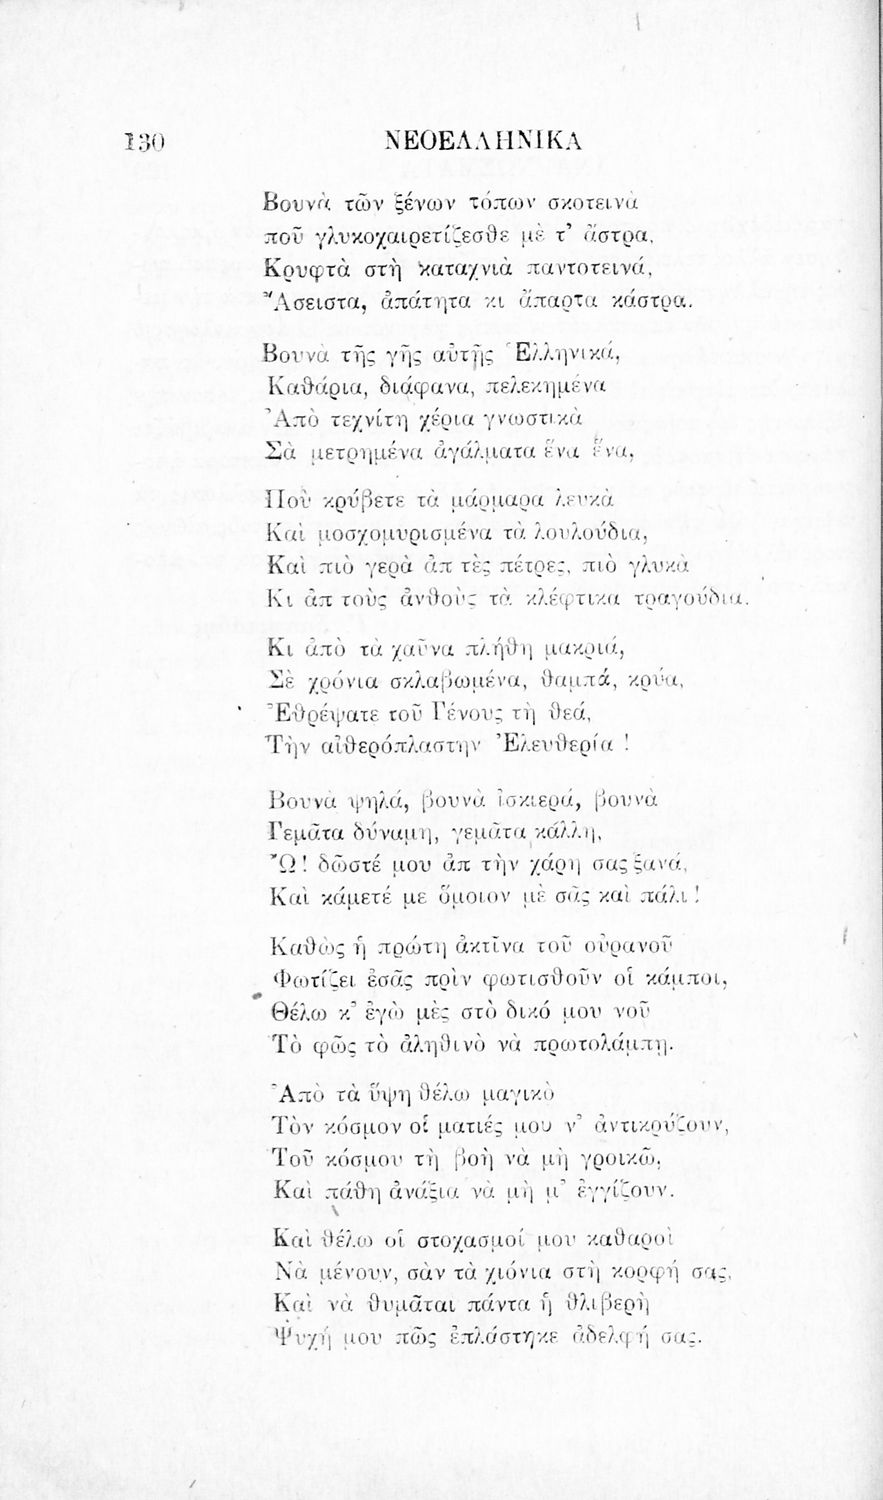 130 ΝΕΟΕΛΛΗΝΙΚΑ
Βουνὰ τῶν ξένων τόπων σκοτεινὰ
ποῦ γλυκοχαιρετίζεσθε μὲ τ' ἄστρα,
Κρυφτὰ στὴ καταχνιὰ παντοτεινά,
Ἄσειστα, ἀπάτητα κι ἄπαρτα κάστρα.
Βουνὰ τῆς γῆς αὐτῆς Ἑλληνικά,
Καθάρια, διάφανα, πελεκημένα
Ἀπὸ τεχνίτη χέρια γνωστικὰ
Σὰ μετρημένα ἀγάλματα ἕνα ἕνα,
Ποὺ κρύβετε τὰ μάρμαρα λευκὰ
Καὶ μοσχομυρισμένα τὰ λουλούδια,
Καὶ πιὸ γερὰ ἀπ τὲς πέτρες, πιὸ γλυκὰ
Κι ἀπ τοὺς ἀνθοὺς τὰ κλέφτικα τραγούδια.
Κι ἀπὸ τὰ χαῦνα πλήθη μακριά,
Σὲ χρόνια σκλαβωμένα, θαμπά, κρύα,
Ἐθρέψατε τοῦ Γένους τὴ θεά,
Τὴν αἰθερόπλαστην Ἐλευθερία !
Βουνὰ ψηλά, βουνὰ ἰσκιερά, βουνὰ
Γεμᾶτα δύναμη, γεμᾶτα κάλλη,
Ὢ! δῶστέ μου ἀπ τὴν χάρη σας ξανά,
Καὶ κάμετέ με ὅμοιον μὲ σᾶς καὶ πάλι !
Καθὼς ἡ πρώτη ἀκτῖνα τοῦ οὐρανοῦ
Φωτίζει ἐσᾶς πρὶν φωτισθοῦν οἱ κάμποι,
Θέλω κ' ἐγὼ μὲς στὸ δικό μου νοῦ
Τὸ φῶς τὸ ἀληθινὸ νὰ πρωτολάμπῃ.
Ἀπὸ τὰ ὕψη θέλω μαγικὸ
Τὸν κόσμον οἱ ματιές μου ν' ἀντικρύζουν,
Τοῦ κόσμου τὴ βοὴ νὰ μὴ γροικῶ,
Καὶ πάθη ἀνάξια νὰ μὴ μ' ἐγγίζουν.
Καὶ θέλω οἱ στοχασμοί μου καθαροὶ
Νὰ μένουν, σὰν τὰ χιόνια στὴ κορφή σας,
Καὶ νὰ θυμᾶται πάντα ἡ θλιβερὴ
Ψυχή μου πῶς ἐπλάστηκε ἀδελφή σας.